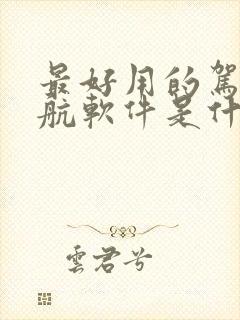 最好用的駕
航軟件是什
雲君兮